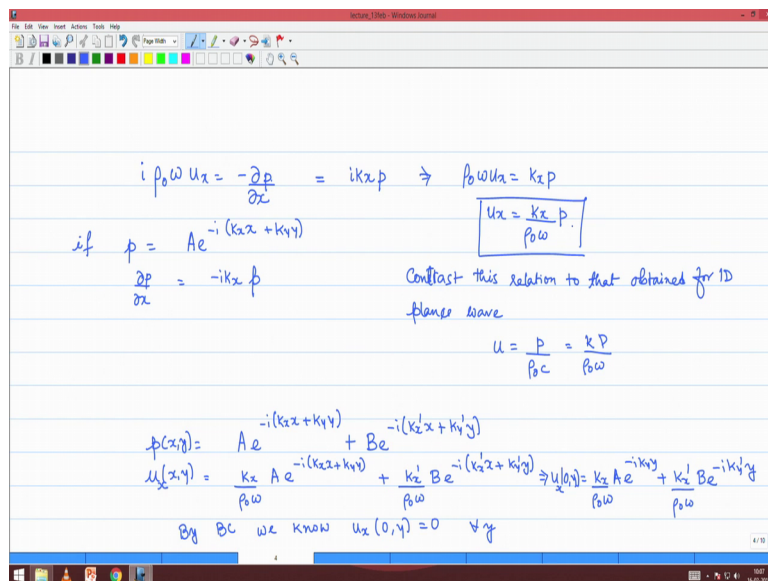 lecture_13feb - Windows Journal
File Edit View Insert Actions Tools Help
Page Width
B I
i ρ₀ω uₓ = -∂p/∂x = i kₓ p ⇒ ρ₀ω uₓ = kₓ p
uₓ = kₓ/ρ₀ω p.
if p = A e^{-i(kₓx + k_y y)}
∂p/∂x = -i kₓ p
Contrast this relation to that obtained for 1D
plane wave
u = p/ρ₀c = kP/ρ₀ω
p(x,y) = A e^{-i(kₓx + k_y y)} + B e^{-i(kₓ'x + k_y'y)}
uₓ(x,y) = kₓ/ρ₀ω A e^{-i(kₓx + k_y y)} + kₓ'/ρ₀ω B e^{-i(kₓ'x + k_y'y)} ⇒ uₓ(0,y) = kₓ/ρ₀ω A e^{-i k_y y} + kₓ'/ρ₀ω B e^{-i k_y' y}
By BC we know uₓ(0,y) = 0 ∀ y
4/10
4
10:07